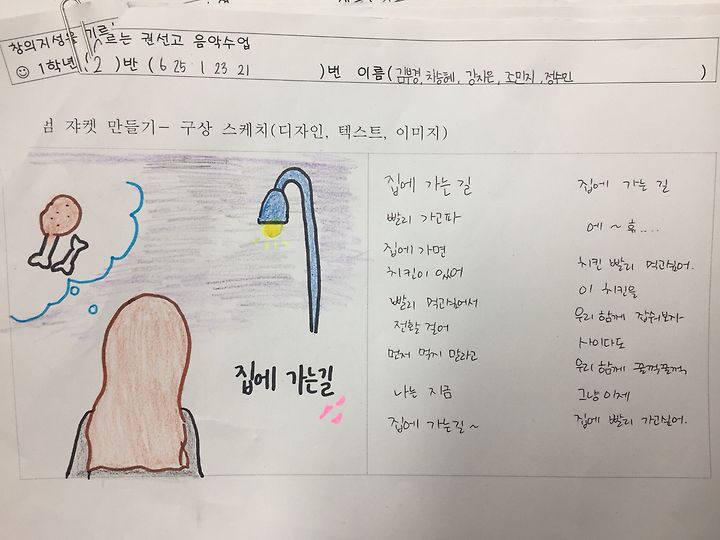 창의지성을 기르는 권선고 음악수업
☺ 1학년 ( 2 )반 ( 6 25 1 23 21 )번 이름( 김부경, 차승혜, 강지은, 조민지, 정수민 )
범 쟈켓 만들기- 구상 스케치(디자인, 텍스트, 이미지)
집에 가는길
집에 가는 길
빨리 가고파
집에 가면
치킨이 있어
빨리 먹고싶어서
전화를 걸어
먼저 먹지 말라고
나는 지금
집에 가는길~
집에 가는 길
에 ~ 휴....
치킨 빨리 먹고싶어.
이 치킨을
우리 함께 잡숴보자
사이다도
우리 함께 꿀꺽꿀꺽
그냥 이제
집에 빨리 가고싶어.